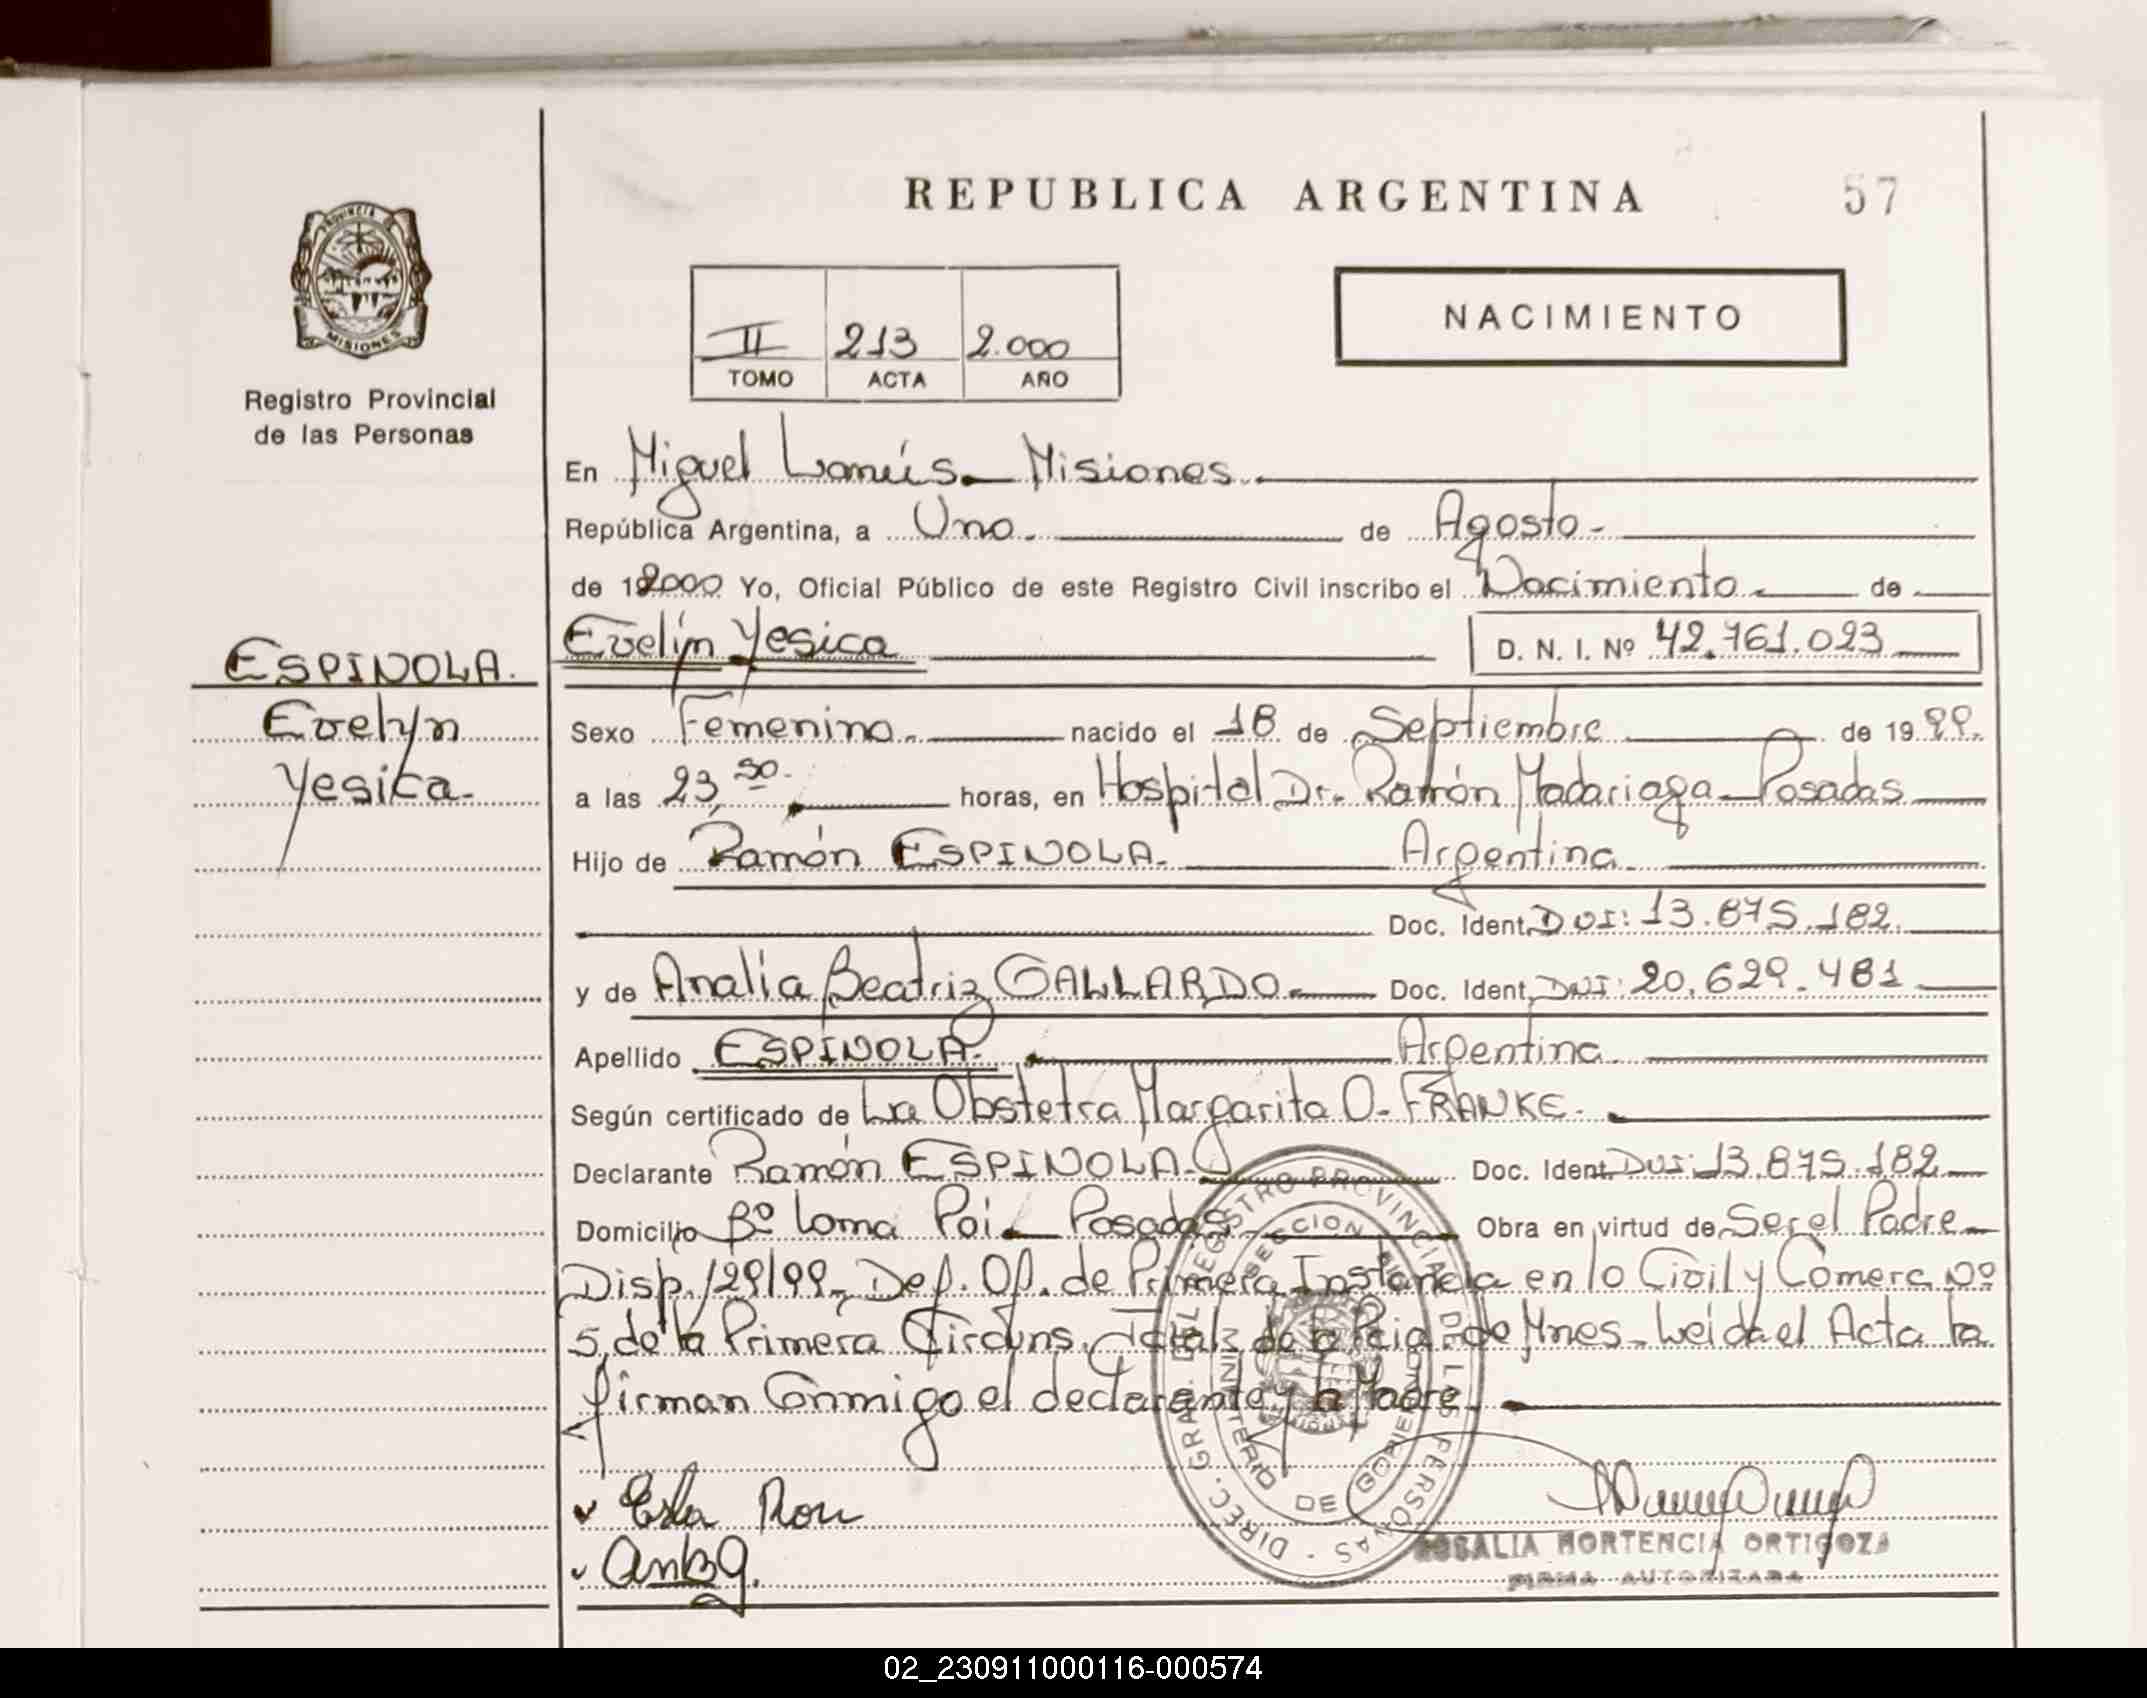 REPUBLICA ARGENTINA
57
PROVINCIA DE MISIONES
Registro Provincial
de las Personas
II 213 2.000
TOMO ACTA AÑO
NACIMIENTO
En Miguel Lanús. Misiones.
República Argentina, a Uno. de Agosto.
de 192000 Yo, Oficial Público de este Registro Civil inscribo el Nacimiento de
Evelin Yesica D. N. I. Nº 42.761.023
ESPINOLA.
Evelyn
Yesica.
Sexo Femenino. nacido el 18 de Septiembre de 1999.
a las 23,50. horas, en Hospital Dr. Ramón Madariaga Posadas
Hijo de Ramón ESPINOLA. Argentina.
Doc. Ident. DNI: 13.875.182.
y de Analía Beatriz GALLARDO. Doc. Ident. DNI: 20.629.481
Apellido ESPINOLA. Argentina.
Según certificado de La Obstetra Margarita O. FRANKE.
Declarante Ramón ESPINOLA. Doc. Ident. DNI: 13.875.182
Domicilio Bº Loma Poi. Posadas Obra en virtud de Ser el Padre
Disp. 129/99. Def. Of. de Primera Instancia en lo Civil y Comerc. Nº
5, de la Primera Circuns. de Pcia. de Mnes. Leida el Acta la
firman Conmigo el declarante y la Madre.
DIREC. GRAL. DEL REGISTRO PROVINCIAL DE LAS PERSONAS
MINISTERIO DE GOBIERNO
ROSALIA HORTENCIA ORTIGOZA
FIRMA AUTORIZADA
02_230911000116-000574